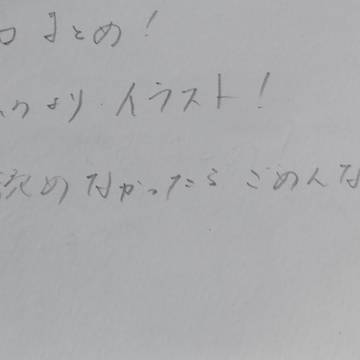 まとめ!
より イラスト!
読めなかったらごめんな